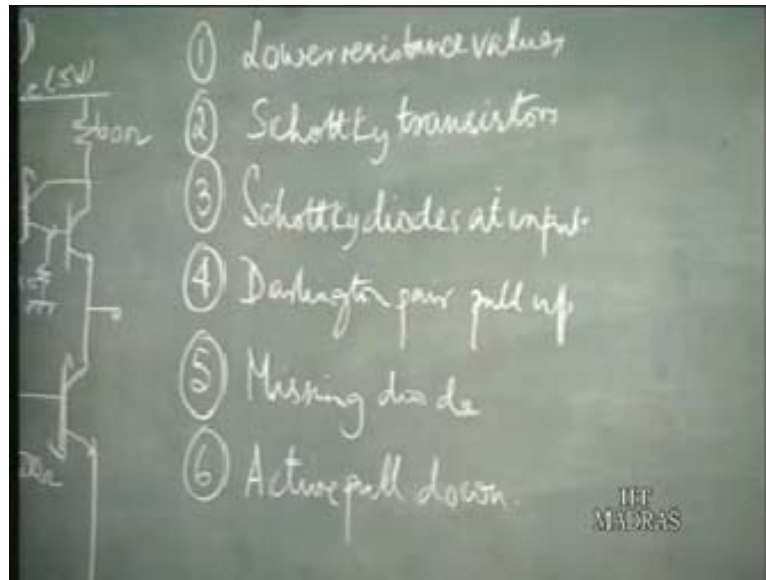 ① Lower resistance values
② Schottky transistors
③ Schottky diodes at input
④ Darlington pair pull up
⑤ Missing diode
⑥ Active pull down.
(5V)
IIT
MADRAS